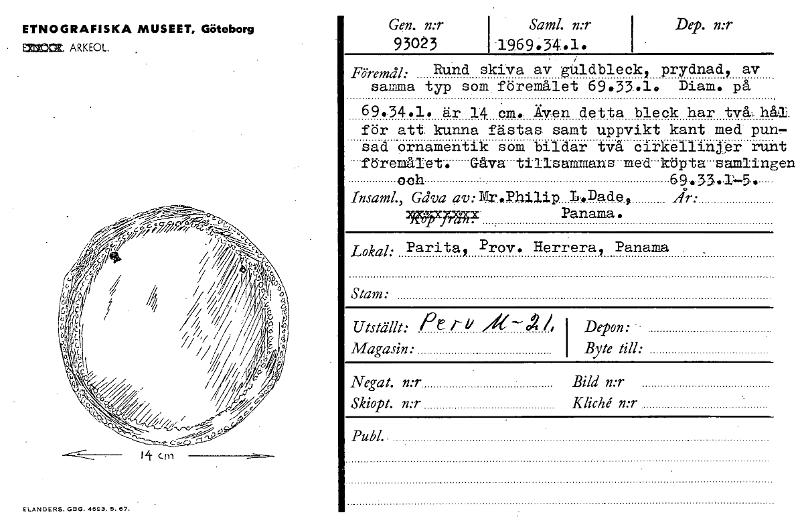 ETNOGRAFISKA MUSEET, Göteborg
ARKEOL.
14 cm
ELANDERS. GBG. 4603. 5. 67.
Gen. n:r Saml. n:r Dep. n:r
93023 1969.34.1.
Föremål: Rund skiva av guldbleck, prydnad, av
samma typ som föremålet 69.33.1. Diam. på
69.34.1. är 14 cm. Även detta bleck har två hål
för att kunna fästas samt uppvikt kant med pun-
sad ornamentik som bildar två cirkellinjer runt
föremålet. Gåva tillsammans med köpta samlingen
och 69.33.1-5.
Insaml., Gåva av: Mr.Philip L.Dade, År:
Köp från: Panama.
Lokal: Parita, Prov. Herrera, Panama
Stam:
Utställt: Peru M-21. Depon:
Magasin: Byte till:
Negat. n:r Bild n:r
Skiopt. n:r Kliché n:r
Publ.